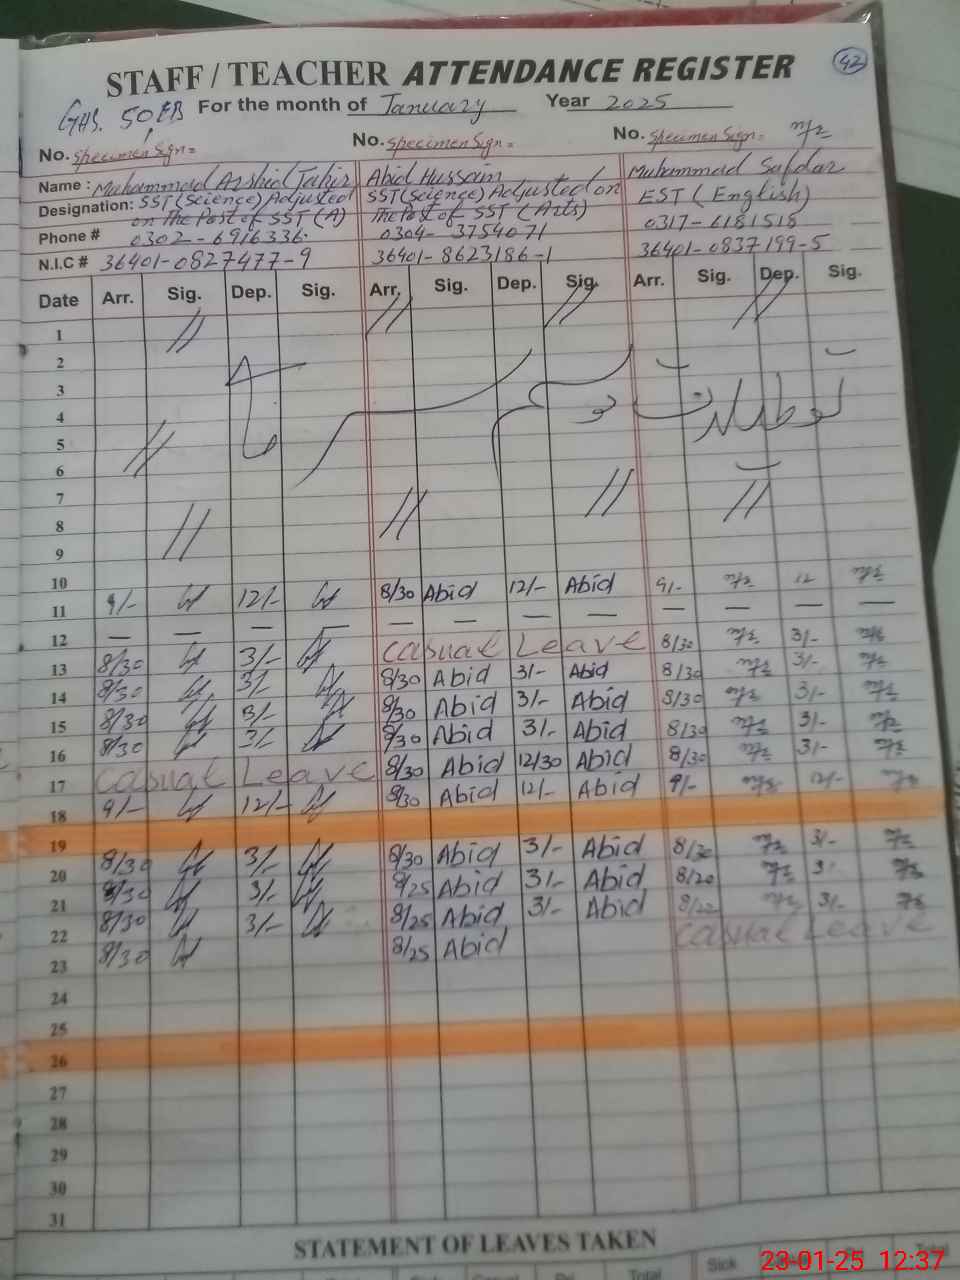 STAFF / TEACHER ATTENDANCE REGISTER
42
GHS. 50EB For the month of January Year 2025
No. Specimen Sign= No. Specimen Sign= No. Specimen Sign=
Name : Muhammad Arshid Tahir Abid Hussain Muhammad Safdar
Designation: SST (Science) Adjusted SST (Science) Adjusted on EST (English)
on the Post of SST (A) the Post of SST (Arts)
Phone # 0302-6916336 0304-3754071 0317-6181518
N.I.C # 36401-0827477-9 36401-8623186-1 36401-0837199-5
Date Arr. Sig. Dep. Sig. Arr. Sig. Dep. Sig. Arr. Sig. Dep. Sig.
1 // // // //
2
3
4
5 //
6
7 // // //
8 //
9
10 9/- 12/- 8/30 Abid 12/- Abid 9/- 12
11 — — — — — — — — — — — —
12
8/30 3/- Casual Leave 8/30 3/-
13
8/30 3/- 8/30 Abid 3/- Abid 8/30 3/-
14
8/30 3/- 8/30 Abid 3/- Abid 8/30 3/-
15
8/30 3/- 8/30 Abid 3/- Abid 8/30 3/-
16
Casual Leave 8/30 Abid 12/30 Abid 8/30 3/-
17
9/- 12/- 8/30 Abid 12/- Abid 9/- 12/-
18
19
8/30 3/- 8/30 Abid 3/- Abid 8/30 3/-
20
8/30 3/- 8/25 Abid 3/- Abid 8/20 3/-
21
8/30 3/- 8/25 Abid 3/- Abid 8/20 3/-
22
8/30 8/25 Abid Casual Leave
23
24
25
26
27
28
29
30
31
STATEMENT OF LEAVES TAKEN
Total Sick Total
23-01-25 12:37